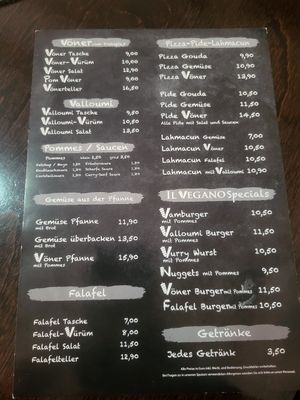 Vöner
Vöner Tasche 9,00
Vöner-Vürüm 10,00
Vöner Salat 12,90
Pom Vöner 9,00
Vönerteller 16,50
Valloumi
Valloumi Tasche 9,50
Valloumi-Vürüm 10,50
Valloumi Salat 13,50
Pommes / Saucen
Pommes
Gemüse aus der Pfanne
Gemüse Pfanne 11,90
mit Brot
Gemüse überbacken 13,50
mit Brot
Vöner Pfanne 15,90
mit Pommes
Falafel
Falafel Tasche 7,00
Falafel-Vürüm 8,00
Falafel Salat 11,50
Falafelteller 12,90
Pizza-Pide-Lahmacun
Pizza Gouda 9,90
Pizza Gemüse 10,90
Pizza Vöner 13,90
Pide Gouda 10,50
Pide Gemüse 11,50
Pide Vöner 14,50
Alle Pide mit Salat und Saucen
Lahmacun Gemüse 7,00
Lahmacun Vöner 10,50
Lahmacun Falafel 10,50
Lahmacun mit Valloumi 10,90
IL VEGANO Specials
Vamburger 10,50
mit Pommes
Valloumi Burger 11,50
mit Pommes
Vurry Wurst 10,50
mit Pommes
Nuggets mit Pommes 9,50
Vöner Burger mit Pommes 11,50
Falafel Burger mit Pommes 10,50
Getränke
Jedes Getränk 3,50